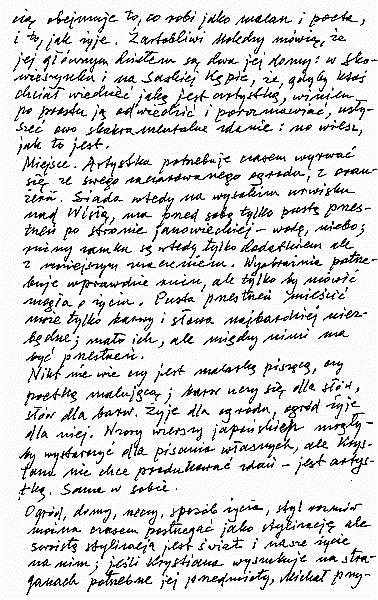 cią obejmuje to, co robi jako malarz i poeta,
i to, jak żyje. Żartobliwi koledzy mówią, że
jej głównym dziełem są dwa jej domy: w Sko-
wieszynku i na Saskiej Kępie, że, gdyby ktoś
chciał wiedzieć jaką jest artystką, winien
po prostu ją odwiedzić i porozmawiać, usły-
szeć owo sakramentalne zdanie: no wiesz,
jak to jest.
Miejsce. Artystka potrzebuje czasem wyrwać
się ze swego zaczarowanego ogrodu, z
Siada wtedy na wysokim urwisku
nad Wisłą, ma przed sobą tylko pustą przes-
trzeń po stronie janowieckiej – wodę, niebo;
ruiny zamku są wtedy tylko dodatkiem ale
z mniejszym znaczeniem. Wyobraźnia potrze-
buje wprawdzie ruin, ale tylko by mówić
mogła o życiu. Pusta przestrzeń zmieścić
może tylko barwy i słowa najbardziej niez-
będne; mało ich, ale między nimi ma
być przestrzeń.
Nikt nie wie czy jest malarką piszącą, czy
poetką malującą; barw uczy się dla słów,
słów dla barw. Żyje dla ogrodu, ogród żyje
dla niej. Wzory wierszy japońskich mogły-
by wystarczyć dla pisania własnych, ale Krys-
tyna nie chce produkować zdań – jest artys-
tką. Sama w sobie.
Ogród, domy, rzeczy, sposób życia, styl rozmów
można czasem postrzegać jako stylizację ale
swoistą stylizacją jest świat i nasze życie
na nim; jeśli Krystiana wyszukuje na stra-
ganach potrzebne jej przedmioty, Michał przy-